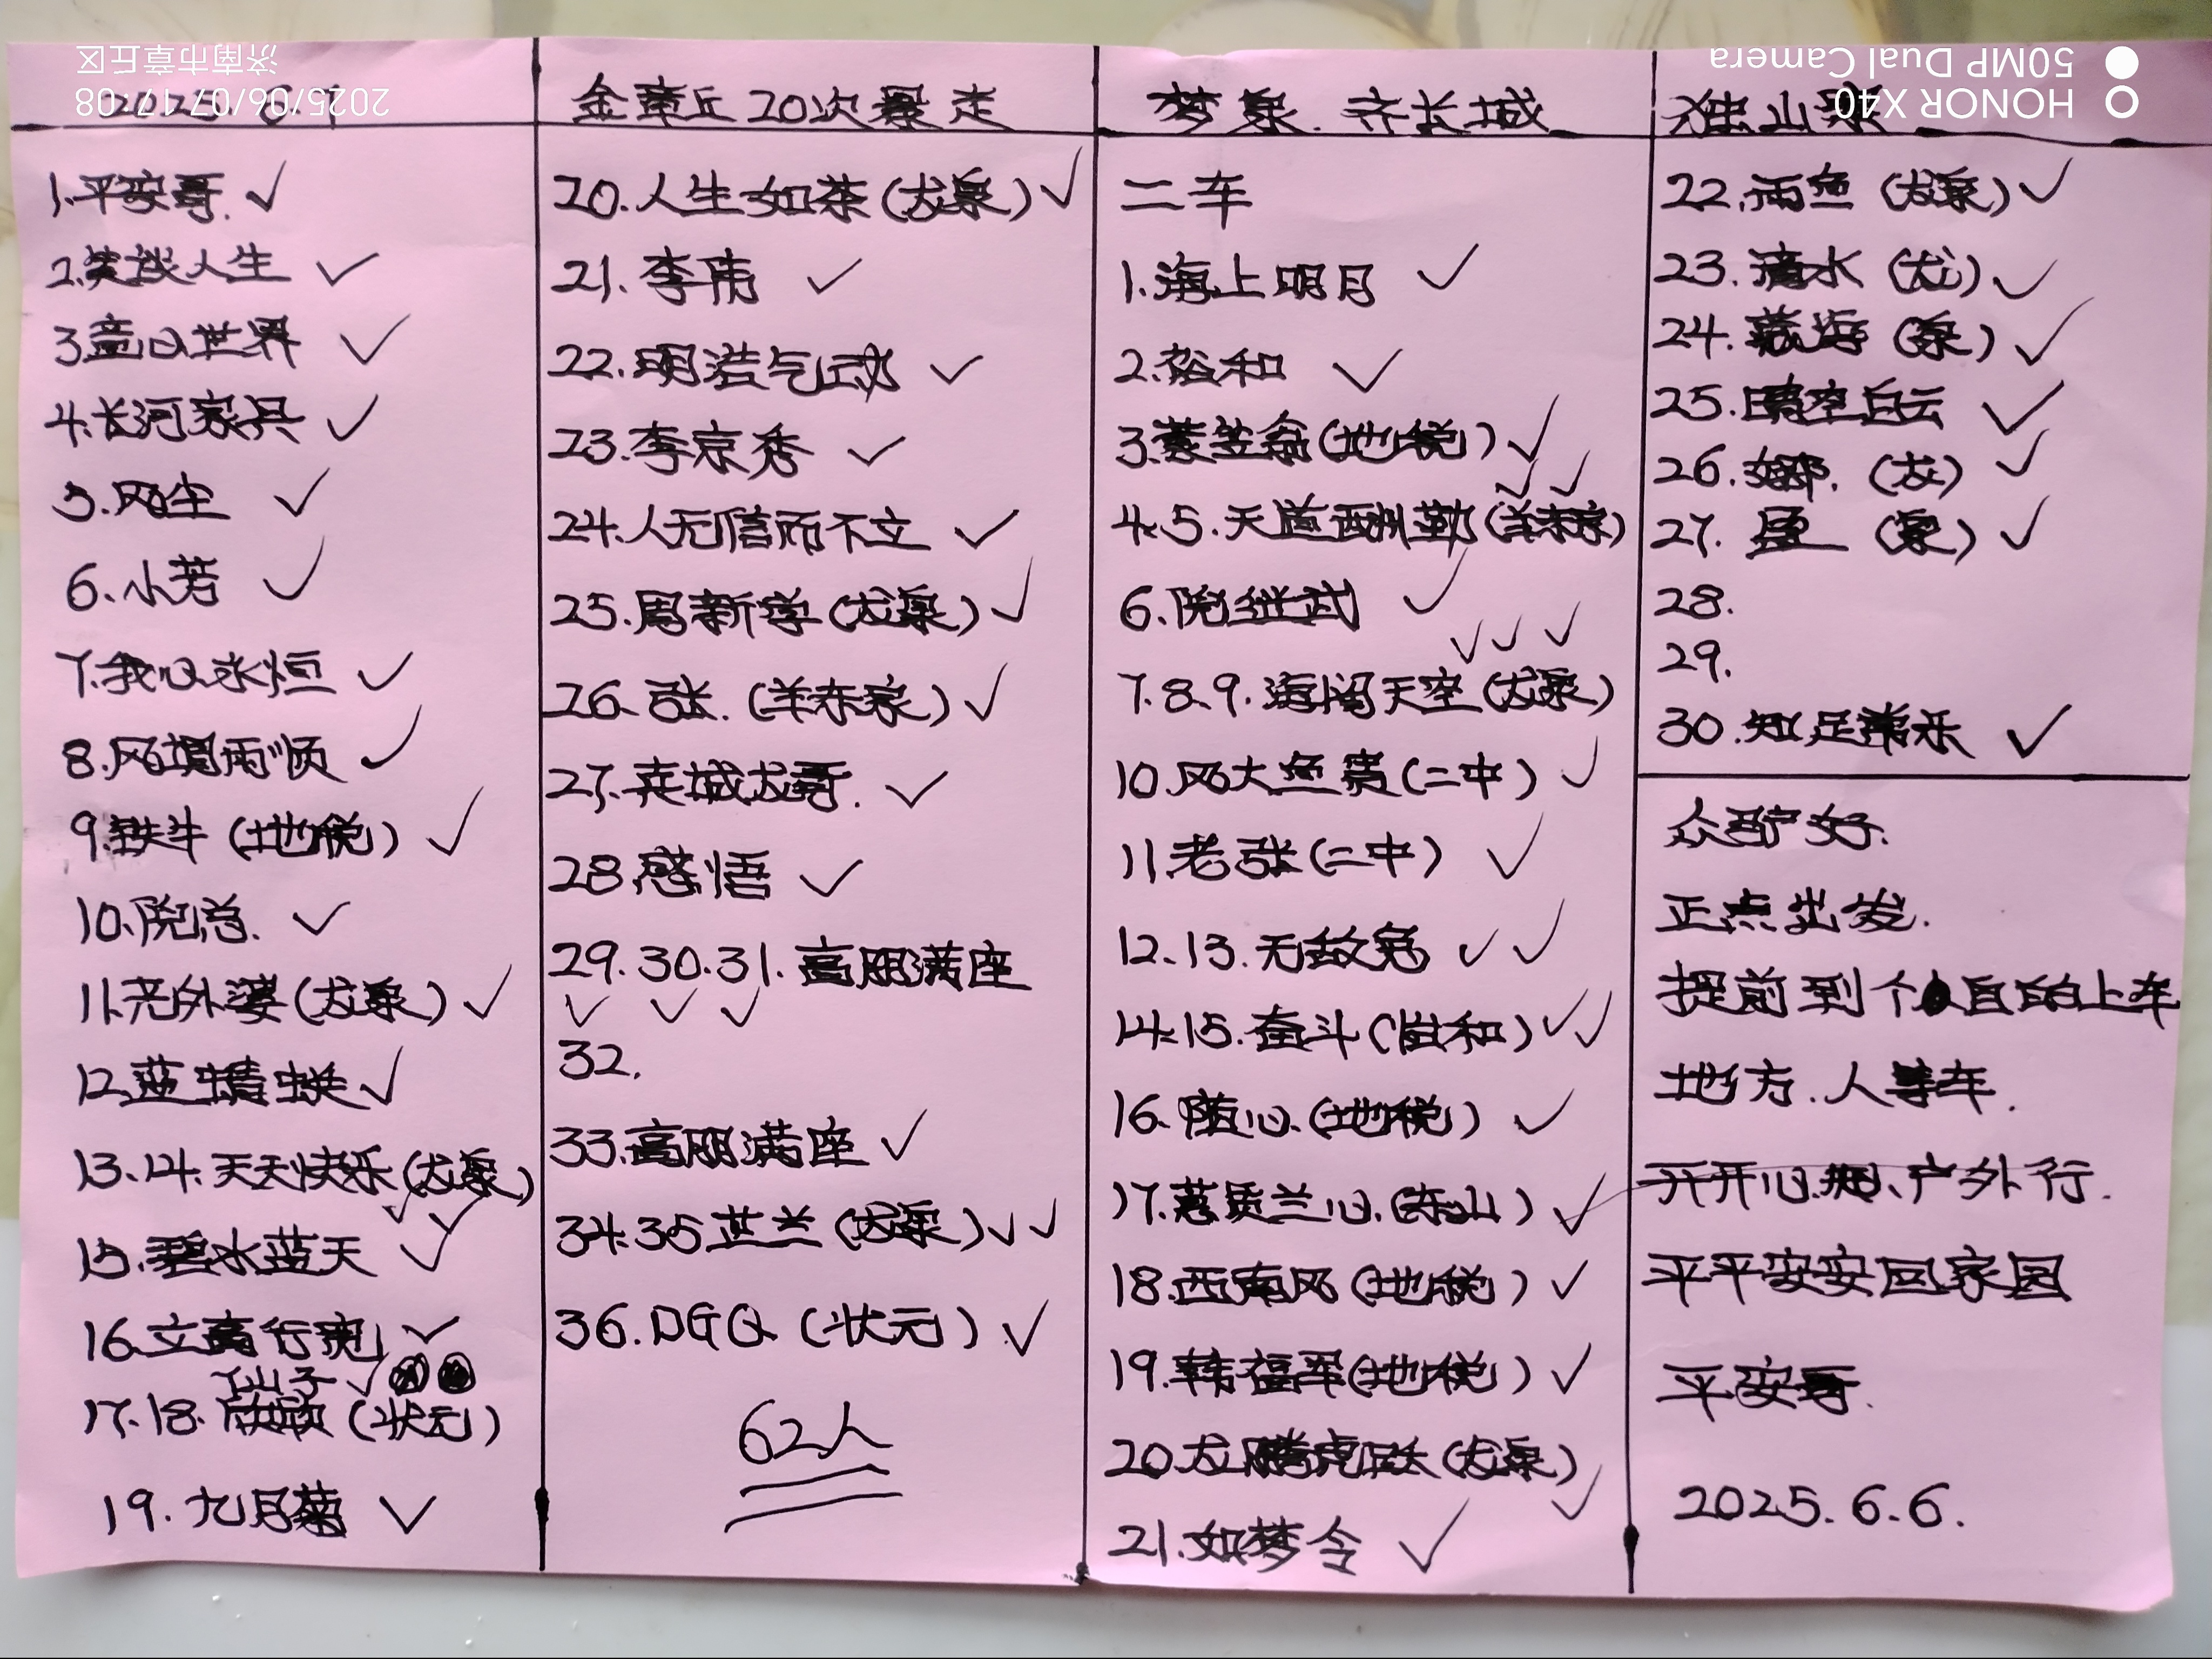 金章丘20次暴走
梦泉.齐长城
独山泉
1.平安哥.✓
2.笑谈人生 ✓
3.童心世界 ✓
4.长河家兵 ✓
5.风尘 ✓
6.小芳 ✓
7.我心永恒 ✓
8.风调雨顺 ✓
9.铁牛(地税) ✓
10.倪总. ✓
11.老外婆(龙泉) ✓
12.蓝蜻蜓 ✓
13.14.天天快乐(龙泉)
✓ ✓
15.碧水蓝天 ✓
16.文高行 ✓
仙子 ✓
17.18.欣欣(状元)
19.九月菊 ✓
20.人生如茶(龙泉) ✓
21.李甫 ✓
22.明浩气动 ✓
23.李京秀 ✓
24.人无信而不立 ✓
25.周新学(龙泉) ✓
26.张.(羊东家) ✓
27.龙哥. ✓
28.感悟 ✓
29.30.31.高朋满座
✓ ✓ ✓
32.
33.高朋满座 ✓
34.35 蓝兰(龙泉) ✓ ✓
36.DGQ(状元) ✓
62人
二车
1.海上明月 ✓
2.裕和 ✓
3.蓑笠翁(地税) ✓
✓ ✓
4.5.天道酬勤(羊东家)
6.倪继武 ✓
✓ ✓ ✓
7.8.9.海阔天空(龙泉)
10.风大鱼贵(二中) ✓
11.老张(二中) ✓
12.13.无敌兔 ✓ ✓
14.15.奋斗(世和) ✓✓
16.随心.(地税) ✓
17.蕙质兰心.(东山) ✓
18.西南风(地税) ✓
19.韩福军(地税) ✓
20.龙腾虎跃(龙泉)
✓
21.如梦令 ✓
22.雨鱼(龙泉) ✓
23.滴水(龙) ✓
24.海(泉) ✓
25.晴空白云 ✓
26.娜.(龙) ✓
27.(泉) ✓
28.
29.
30.知足常乐 ✓
众驴好.
正点出发.
提前到个自的上车
地方.人等车.
开开心心、户外行.
平平安安回家园
平安哥.
2025.6.6.
HONOR X40
50MP Dual Camera
2025/06/07 17:08
济南市章丘区